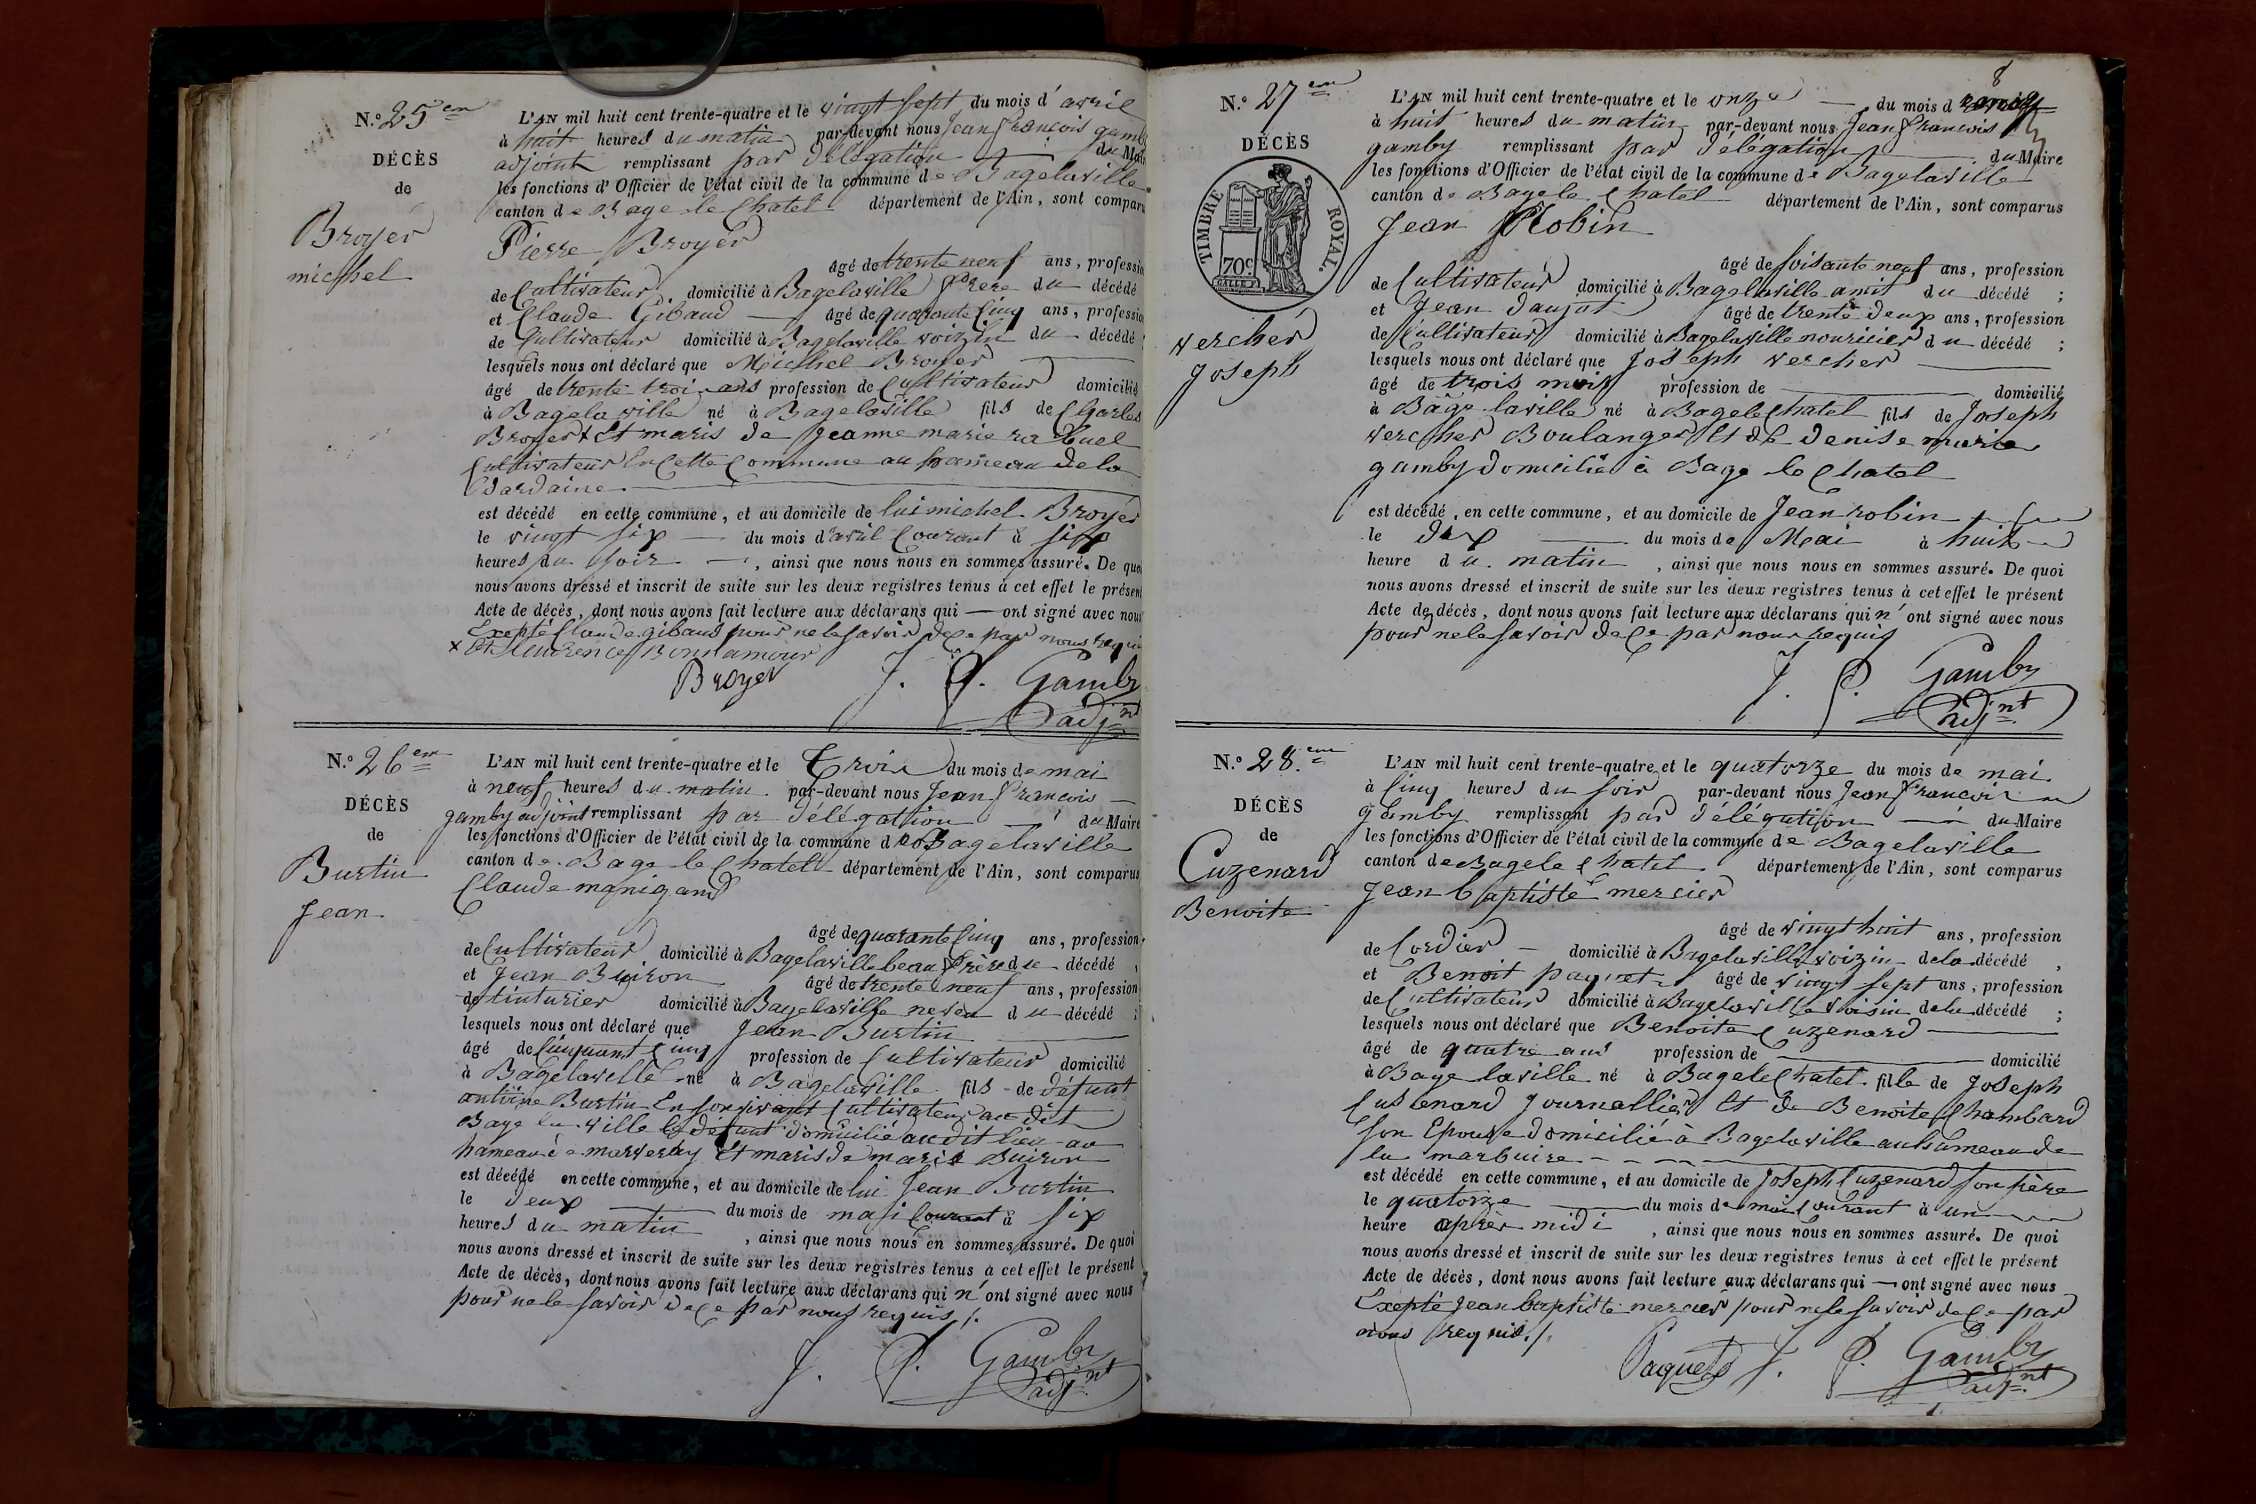 N.º 25em
DÉCÈS
de
Broyer
michel
L'AN mil huit cent trente-quatre et le vingt sept du mois d'avril
à huit heures du matin par-devant nous Jean françois gamby
adjoint remplissant par délégation du Maire
les fonctions d'Officier de l'état civil de la commune de Bagelaville
canton de Bage le Chatel département de l'Ain, sont comparu
Pierre Broyer
âgé de trente neuf ans, profession
de Cultivateur domicilié à Bagelaville frere du décédé
et Claude Gibaud âgé de quarante Cinq ans, profession
de Cultivateur domicilié à Bagelaville voizin du décédé
lesquels nous ont déclaré que Michel Broyer
âgé de trente trois ans profession de Cultivateur domicilié
à Bagelaville né à Bagelaville fils de Charles
Broyer x Et maris de Jeanne marie rabuel
Cultivateur En Cette Commune au hameau de la
Dardaine
est décédé en cette commune, et au domicile de lui michel Broyer
le vingt six du mois d'avril Courant à six
heures du soir, ainsi que nous nous en sommes assuré. De quoi
nous avons dressé et inscrit de suite sur les deux registres tenus à cet effet le présent
Acte de décès, dont nous avons fait lecture aux déclarans qui — ont signé avec nous
Exepté Claude gibaud pour ne le savoir de Ce par nous requis
x Et Laurence Bonnamour
Broyer J. f. Gamby
adjnt
N.º 26em
DÉCÈS
de
Burtin
Jean
L'AN mil huit cent trente-quatre et le Trois du mois de mai
à neuf heures du matin par-devant nous Jean francois
gamby adjoint remplissant par délégation du Maire
les fonctions d'Officier de l'état civil de la commune de Bagelaville
canton de Bage le Chatel département de l'Ain, sont comparus
Claude manigand
âgé de quarante Cinq ans, profession
de Cultivateur domicilié à Bagelaville beau frère du décédé,
et Jean Buiron âgé de trente neuf ans, profession
de tinturier domicilié à Bagelaville neveu du décédé;
lesquels nous ont déclaré que Jean Burtin
âgé de Cinquant Cinq profession de Cultivateur domicilié
à Bagelaville né à Bagelaville fils de défunt
antoine Burtin En son vivant Cultivateur au dit
Bage la ville le défunt domicilié audit lieu au
hameau de Et maris de marie Buiron
est décédé en cette commune, et au domicile de lui Jean Burtin
le deux du mois de mai Courant à six
heures du matin, ainsi que nous nous en sommes assuré. De quoi
nous avons dressé et inscrit de suite sur les deux registres tenus à cet effet le présent
Acte de décès, dont nous avons fait lecture aux déclarans qui n'ont signé avec nous
pour ne le savoir de Ce par nous requis /.
J. f. Gamby
adjnt
8
N.º 27em
DÉCÈS
TIMBRE ROYAL.
70c
vercher
Joseph
L'AN mil huit cent trente-quatre et le onze du mois d
à huit heures du matin par-devant nous Jean francois
gamby remplissant par délégation du Maire
les fonctions d'Officier de l'état civil de la commune de Bagelaville
canton de Bage le Chatel département de l'Ain, sont comparus
Jean Robin
âgé de soisante neuf ans, profession
de Cultivateur domicilié à Bagelaville amis du décédé;
et Jean daujat âgé de trente deux ans, profession
de Cultivateur domicilié à Bagelaville nouricier du décédé;
lesquels nous ont déclaré que Joseph vercher
âgé de trois mois profession de domicilié
à Bage laville né à Bage le Chatel fils de Joseph
vercher Boulanger Et de denise marie
gamby domicilié à Bage le Chatel
est décédé, en cette commune, et au domicile de Jean robin
le dix du mois de Mai à huit
heure du matin, ainsi que nous nous en sommes assuré. De quoi
nous avons dressé et inscrit de suite sur les deux registres tenus à cet effet le présent
Acte de décès, dont nous avons fait lecture aux déclarans qui n'ont signé avec nous
pour ne le savoir de Ce par nous requis
J. f. Gamby
adjnt
N.º 28em
DÉCÈS
de
Cuzenard
Benoite
L'AN mil huit cent trente-quatre et le quatorze du mois de mai
à Cinq heures du soir par-devant nous Jean francois
gamby remplissant par délégation du Maire
les fonctions d'Officier de l'état civil de la commune de Bagelaville
canton de Bage le Chatel département de l'Ain, sont comparus
Jean baptiste mercier
âgé de vingt huit ans, profession
de Cordier domicilié à Bagelaville voizin de la décédé,
et Benoit paquet âgé de vingt sept ans, profession
de Cultivateur domicilié à Bagelaville voisin de la décédé;
lesquels nous ont déclaré que Benoite Cuzenard
âgé de quatre ans profession de domicilié
à Bage laville né à Bage le Chatel fille de Joseph
Cusenard Journallier Et de Benoite Chambard
son Epouse domicilié à Bagelaville au hameau de
la marbuire
est décédé en cette commune, et au domicile de Joseph Cuzenard son père
le quatorze du mois de mai Courant à un
heure après midi, ainsi que nous nous en sommes assuré. De quoi
nous avons dressé et inscrit de suite sur les deux registres tenus à cet effet le présent
Acte de décès, dont nous avons fait lecture aux déclarans qui — ont signé avec nous
Exepté Jean baptiste mercier pour ne le savoir de Ce par
nous requis. /.
Paquet J. f. Gamby
adjnt